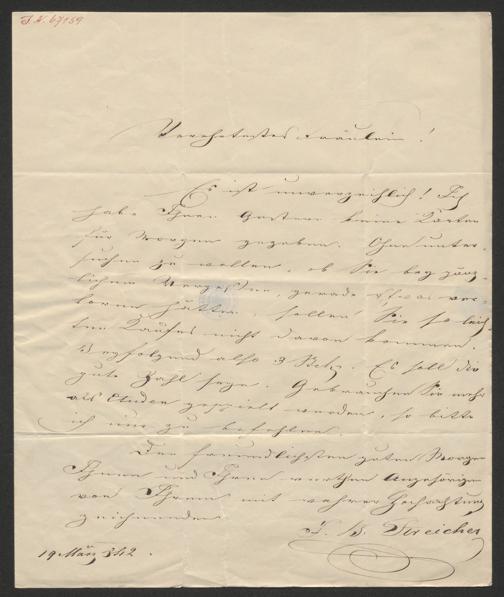 I.N. 67159
Verehrtestes Fräulein!
Es ist unverzeihlich! Ich
habe Ihnen Gestern keine Karten
für Morgen gegeben. Ohne unter-
suchen zu wollen, ob Sie bey gänz-
lichem Vergessen, gerade etwas ver-
loren hätten, sollen Sie so leich
ten Kaufes nicht davon kommen.
folgend also 3 Es soll die
gute Zahl seyn. Gebrauchen Sie mehr
als gespielt werden, so bitte
ich nur zu befehlen.
Den freundlichsten guten Morgen
Ihnen und Ihren werthen Angehörigen
von Ihrem mit wahrer Hochachtung
zeichnenden
J. B. Streicher
19 März 842.